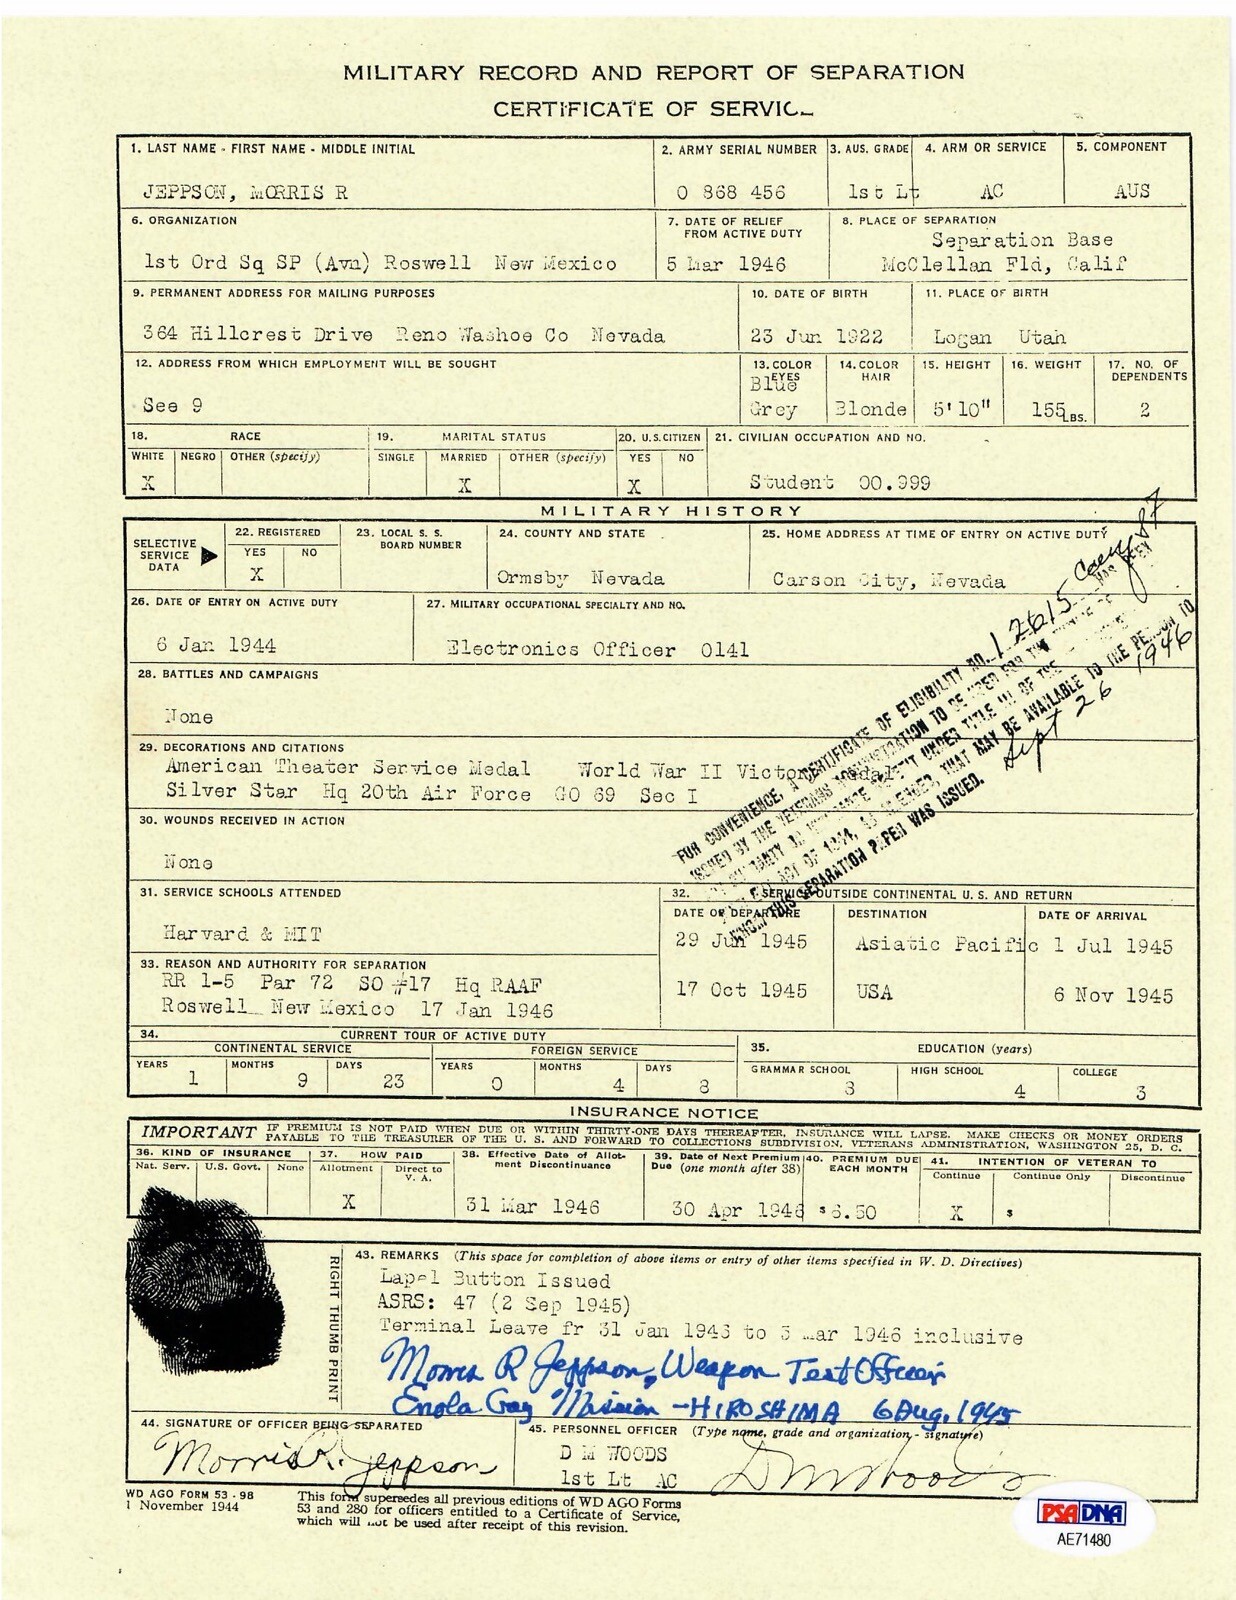 MILITARY RECORD AND REPORT OF SEPARATION
CERTIFICATE OF SERVIC
1. LAST NAME - FIRST NAME - MIDDLE INITIAL
JEPPSON, MORRIS R
2. ARMY SERIAL NUMBER
O 868 456
3. AUS. GRADE
1st Lt
4. ARM OR SERVICE
AC
5. COMPONENT
AUS
6. ORGANIZATION
1st Ord Sq SP (Avn) Roswell New Mexico
7. DATE OF RELIEF FROM ACTIVE DUTY
5 Mar 1946
8. PLACE OF SEPARATION
Separation Base
McClellan Fld, Calif
9. PERMANENT ADDRESS FOR MAILING PURPOSES
364 Hillcrest Drive Reno Washoe Co Nevada
10. DATE OF BIRTH
23 Jun 1922
11. PLACE OF BIRTH
Logan Utah
12. ADDRESS FROM WHICH EMPLOYMENT WILL BE SOUGHT
See 9
13. COLOR EYES
Blue
Grey
14. COLOR HAIR
Blonde
15. HEIGHT
5'10"
16. WEIGHT
155 LBS.
17. NO. OF DEPENDENTS
2
18. RACE
WHITE NEGRO OTHER (specify)
X
19. MARITAL STATUS
SINGLE MARRIED OTHER (specify)
X
20. U.S. CITIZEN
YES NO
X
21. CIVILIAN OCCUPATION AND NO.
Student 00.999
MILITARY HISTORY
SELECTIVE SERVICE DATA
22. REGISTERED
YES NO
X
23. LOCAL S. S. BOARD NUMBER
24. COUNTY AND STATE
Ormsby Nevada
25. HOME ADDRESS AT TIME OF ENTRY ON ACTIVE DUTY
Carson City, Nevada
26. DATE OF ENTRY ON ACTIVE DUTY
6 Jan 1944
27. MILITARY OCCUPATIONAL SPECIALTY AND NO.
Electronics Officer 0141
28. BATTLES AND CAMPAIGNS
None
29. DECORATIONS AND CITATIONS
American Theater Service Medal World War II Victory Medal
Silver Star Hq 20th Air Force GO 69 Sec I
FOR CONVENIENCE, A CERTIFICATE OF ELIGIBILITY NO. 12615 HAS BEEN
ISSUED BY THE VETERANS ADMINISTRATION TO BE USED FOR THE
GUARANTY OR INSURANCE BENEFIT UNDER TITLE III OF THE
ACT OF 1944, AS AMENDED, THAT MAY BE AVAILABLE TO THE PERSON TO
WHOM THIS SEPARATION PAPER WAS ISSUED.
Sept 26 1946
30. WOUNDS RECEIVED IN ACTION
None
31. SERVICE SCHOOLS ATTENDED
Harvard & MIT
32. SERVICE OUTSIDE CONTINENTAL U. S. AND RETURN
DATE OF DEPARTURE DESTINATION DATE OF ARRIVAL
29 Jun 1945 Asiatic Pacific 1 Jul 1945
17 Oct 1945 USA 6 Nov 1945
33. REASON AND AUTHORITY FOR SEPARATION
RR 1-5 Par 72 SO #17 Hq RAAF
Roswell New Mexico 17 Jan 1946
34. CURRENT TOUR OF ACTIVE DUTY
CONTINENTAL SERVICE FOREIGN SERVICE
YEARS MONTHS DAYS YEARS MONTHS DAYS
1 9 23 0 4 8
35. EDUCATION (years)
GRAMMAR SCHOOL HIGH SCHOOL COLLEGE
8 4 3
INSURANCE NOTICE
IMPORTANT IF PREMIUM IS NOT PAID WHEN DUE OR WITHIN THIRTY-ONE DAYS THEREAFTER, INSURANCE WILL LAPSE. MAKE CHECKS OR MONEY ORDERS
PAYABLE TO THE TREASURER OF THE U. S. AND FORWARD TO COLLECTIONS SUBDIVISION, VETERANS ADMINISTRATION, WASHINGTON 25, D. C.
36. KIND OF INSURANCE
Nat. Serv. U.S. Govt. None
37. HOW PAID
Allotment Direct to V. A.
X
38. Effective Date of Allotment Discontinuance
31 Mar 1946
39. Date of Next Premium Due (one month after 38)
30 Apr 1946
40. PREMIUM DUE EACH MONTH
$6.50
41. INTENTION OF VETERAN TO
Continue Continue Only Discontinue
X $
RIGHT THUMB PRINT
43. REMARKS (This space for completion of above items or entry of other items specified in W. D. Directives)
Lapel Button Issued
ASRS: 47 (2 Sep 1945)
Terminal Leave fr 31 Jan 1946 to 5 Mar 1946 inclusive
Morris R Jeppson, Weapon Test Officer
Enola Gay Mission - HIROSHIMA 6 Aug. 1945
44. SIGNATURE OF OFFICER BEING SEPARATED
Morris R. Jeppson
45. PERSONNEL OFFICER (Type name, grade and organization - signature)
D M WOODS
1st Lt AC
D M Woods
WD AGO FORM 53-98
1 November 1944
This form supersedes all previous editions of WD AGO Forms
53 and 280 for officers entitled to a Certificate of Service,
which will not be used after receipt of this revision.
PSA DNA
AE71480